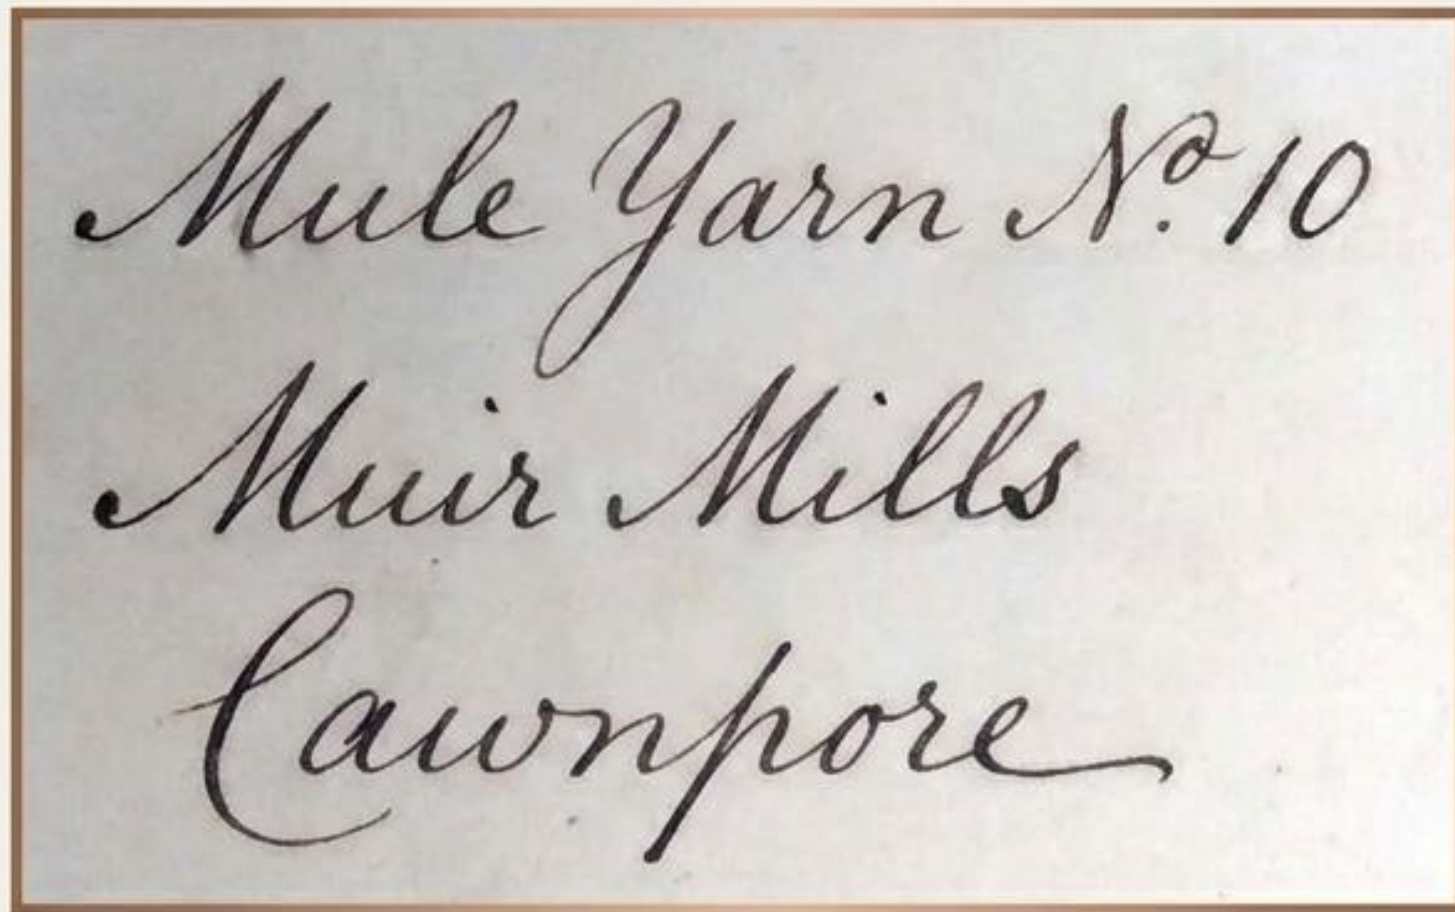 Mule Yarn No. 10
Muir Mills
Cawnpore